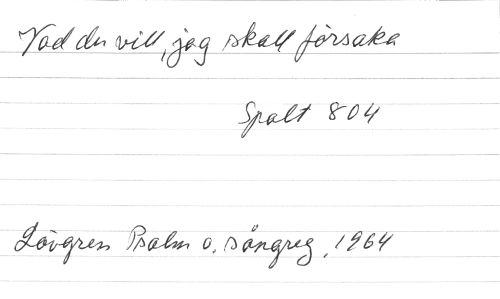 Vad du vill, jag skall försaka
Spalt 804
Lövgren Psalm o. sångreg, 1964